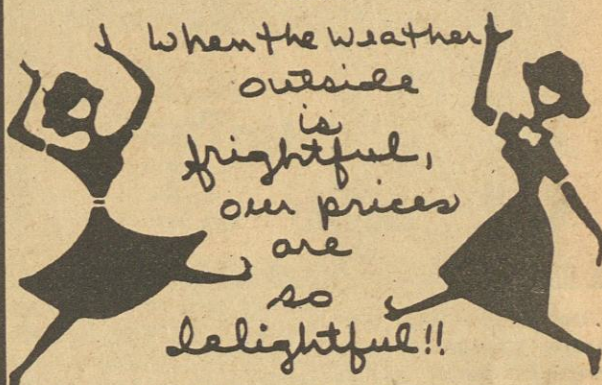 When the Weather
outside
is
frightful,
our prices
are
so
delightful!!